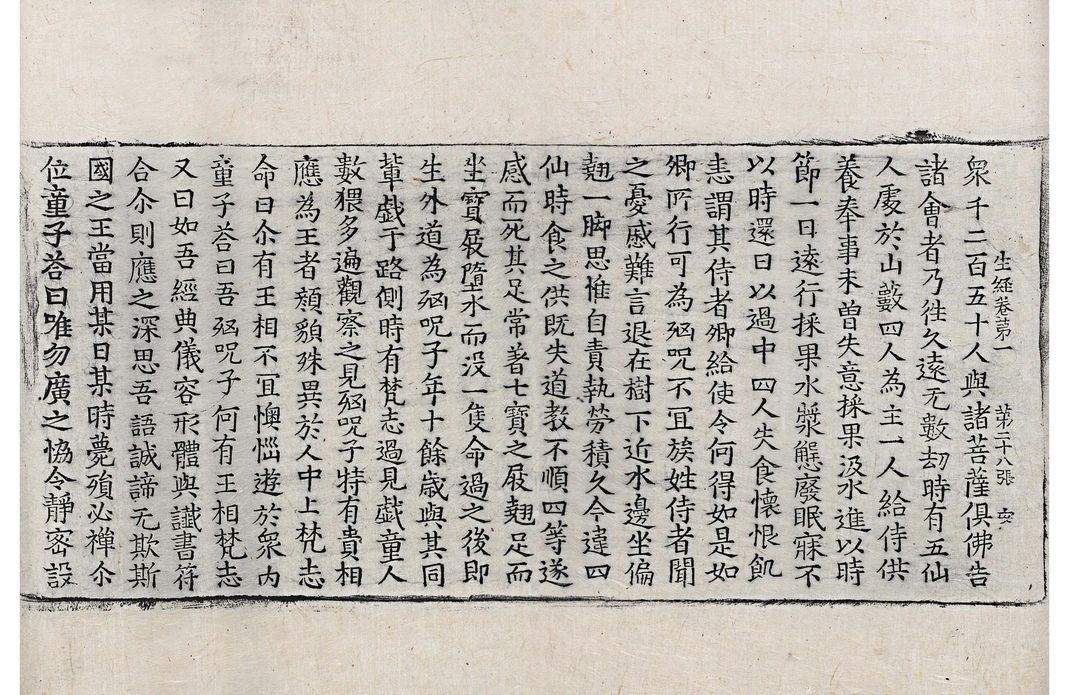 生経卷第一　第二十八張
衆千二百五十人與諸菩薩俱佛告
諸會者乃徃久遠无數劫時有五仙
人處於山藪四人為主一人給侍供
養奉事未曾失意採果汲水進以時
節一日遠行採果水漿懈廢眠寐不
以時還日以過中四人失食懷恨飢
恚謂其侍者卿給使令何得如是如
卿所行可為𠒋呪不冝族姓侍者聞
之憂慼難言退在樹下近水邊坐偏
翹一脚思惟自責執勞積久今違四
仙時食之供既失道教不順四等遂
感而死其足常著七寶之屐翹足而
坐寶屐墮水而没一隻命過之後即
生外道為𠒋呪子年十餘歳與其同
輩戯于路側時有梵志過見戯童人
數猥多遍觀察之見𠒋呪子特有貴相
應為王者顏貌殊異於人中上梵志
命曰尒有王相不冝懊惱遊於衆内
童子荅曰吾𠒋呪子何有王相梵志
又曰如吾經典儀容形體與讖書符
合尒則應之深思吾語誠諦无欺斯
國之王當用某日某時薨殞必禪尒
位童子荅曰唯勿廣之恊令靜密設